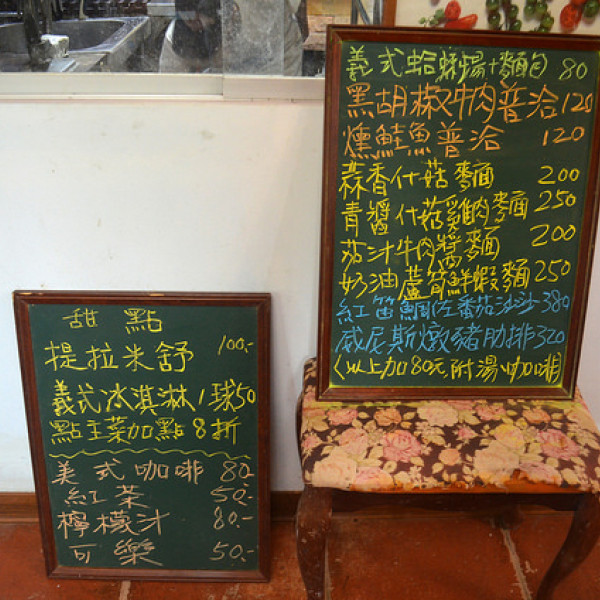 義式蛤蜊湯+麵包 80
黑胡椒牛肉普洽 120
燻鮭魚普洽 120
蒜香什菇麵 200
青醬什菇雞肉麵 250
茄汁牛肉醬麵 200
奶油蘆筍鮮蝦麵 250
紅笛鯛佐番茄沙沙 380
威尼斯燉豬肋排 320
(以上加80元附湯咖啡)
甜點
提拉米舒 100.-
義式冰淇淋1球50
點主菜加點8折
美式咖啡 80.-
紅茶 50.-
檸檬汁 80.-
可樂 50.-